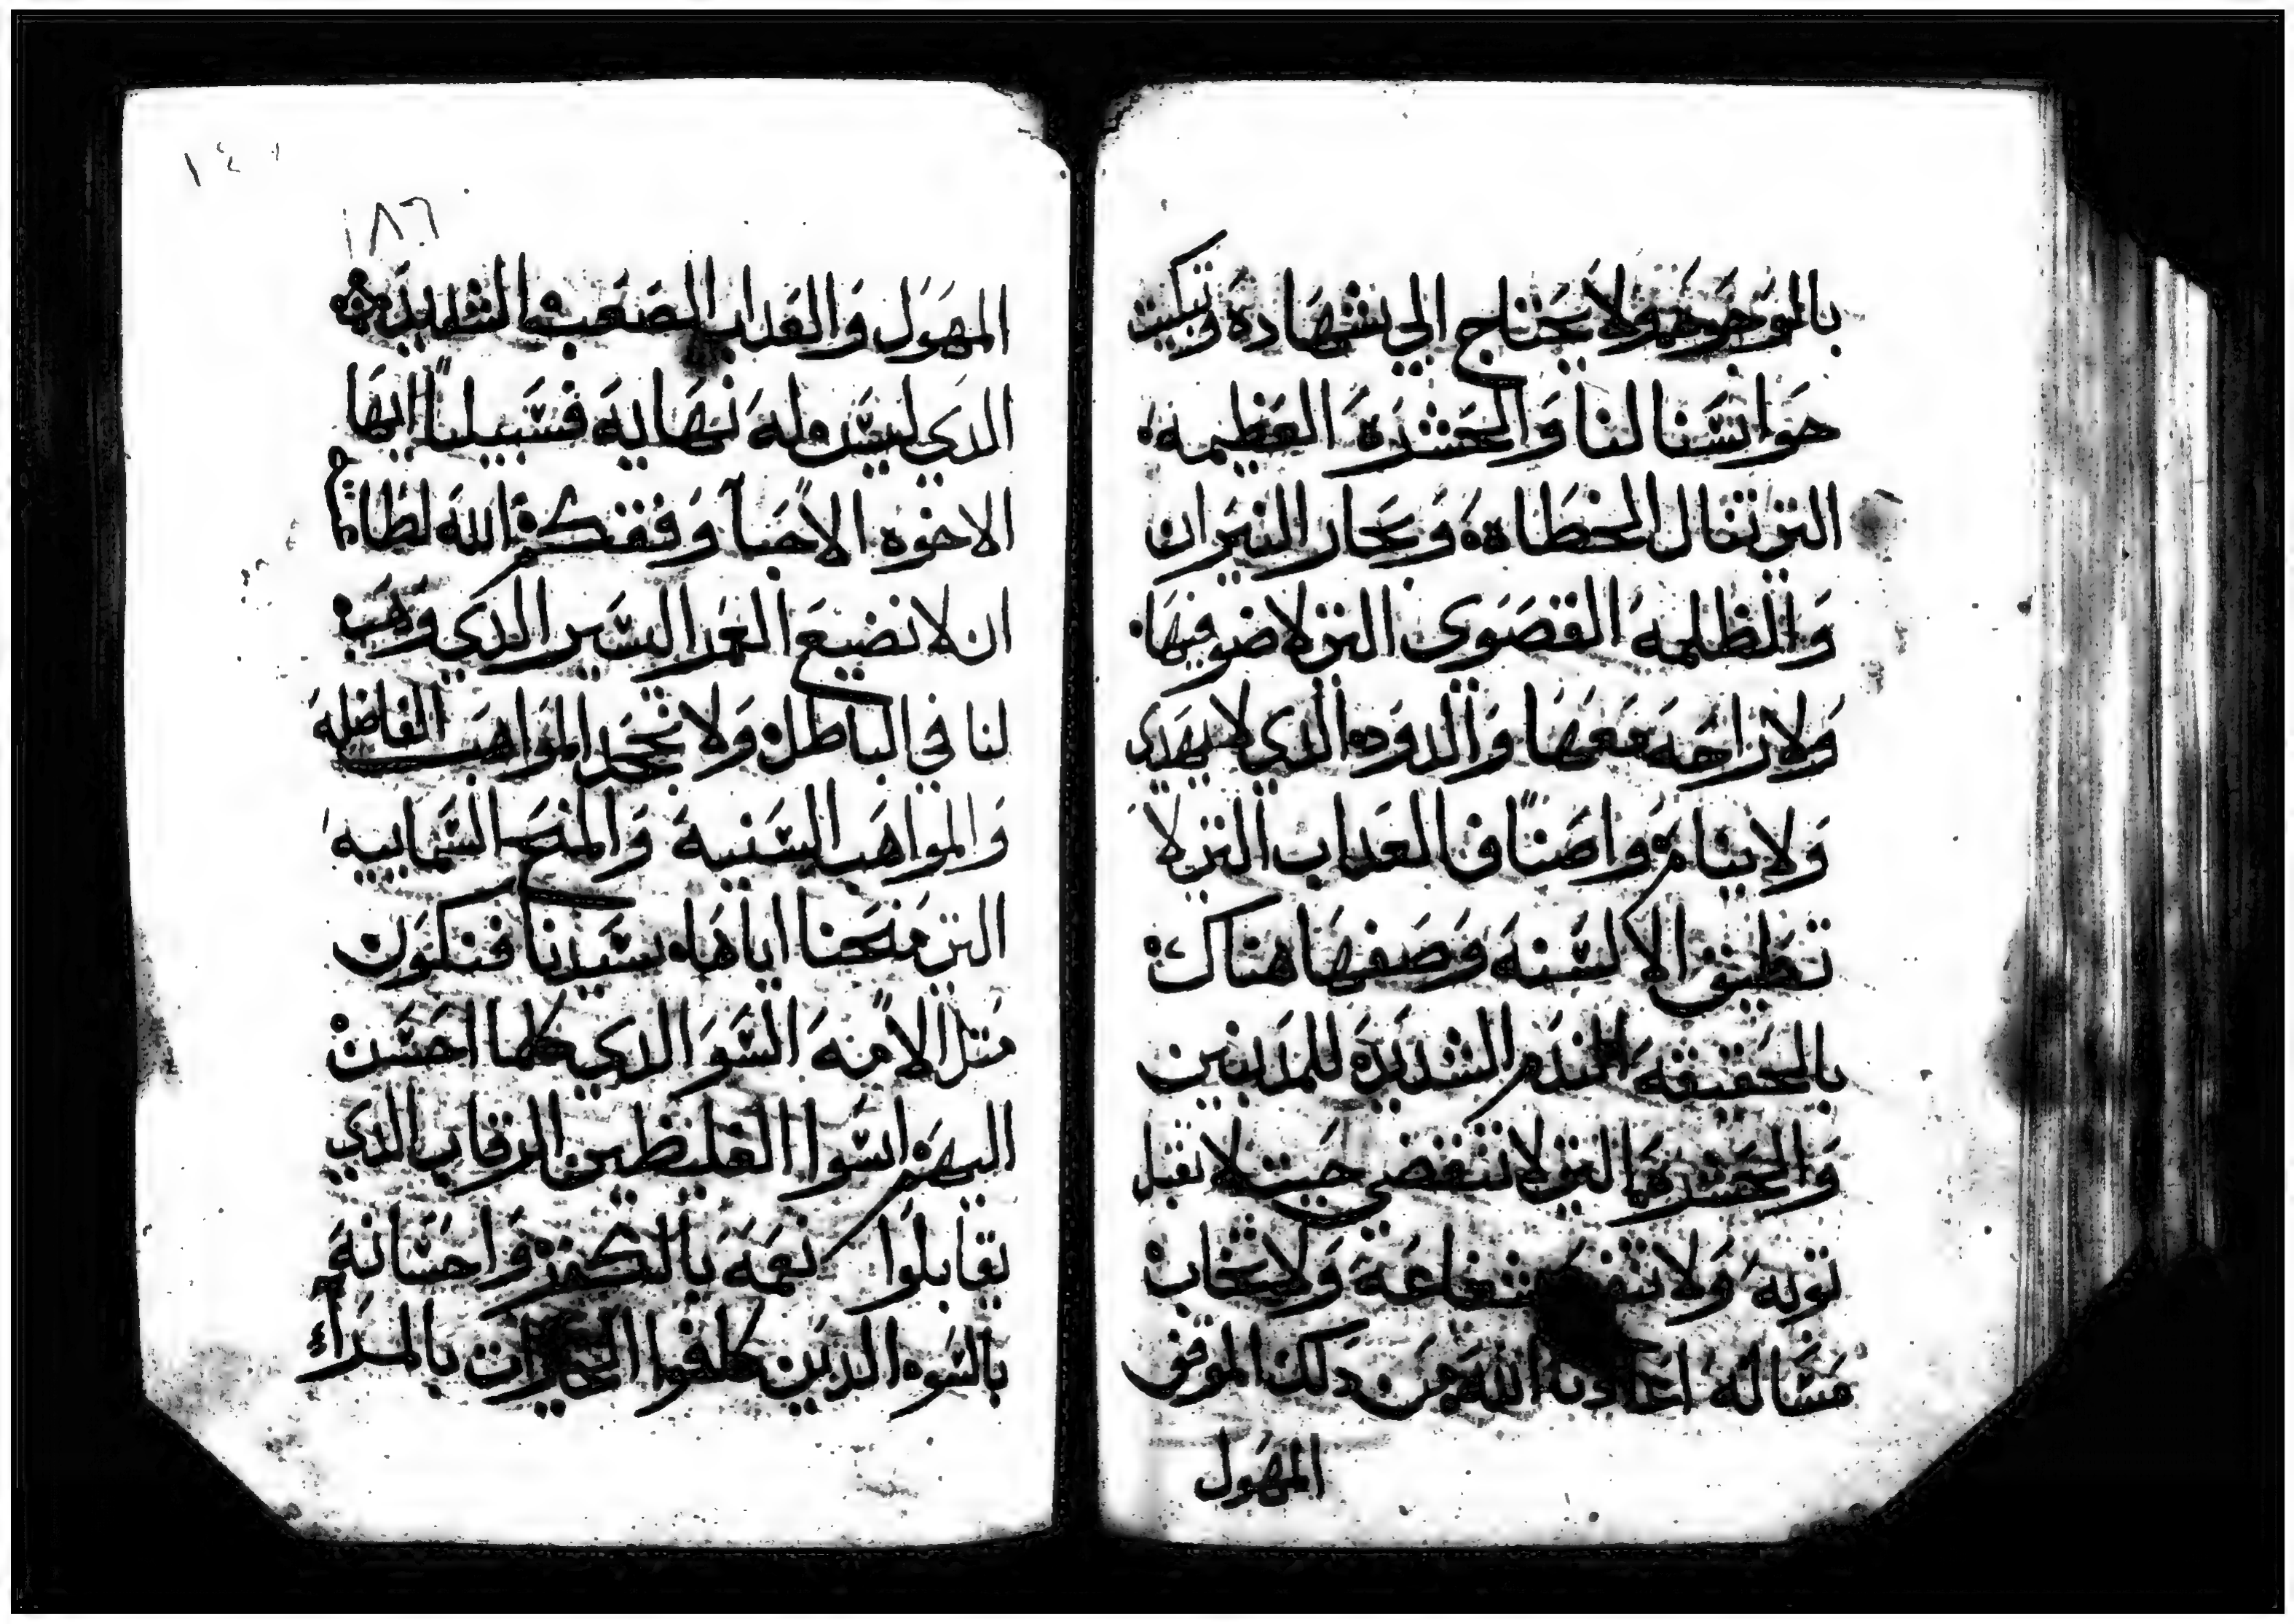 بالموجوده ولا يحتاج الي شهادة وتبكيت
حواسنا لنا والحسره العظيمه
التي تنال الخطاه وبحار النيران
والمظلمه القصوي التي لا ضو فيها
ولا راحه معها والدوده الذي لا يهدي
ولا ينام واصناف العداب التي لا
تطيق الالسنه وصفها هناك
بالحقيقه الندم الشديده للمدنبين
والحسره التي لا تنقضي حيت لا تقبل
توبه ولا شفاعة ولا يجاب
مساله اعادنا الله من دلك الموقف
المهول
١٨٦
المهول والعداب الصعب الشديد
الدي ليس له نهاية فسبيلنا ايها
الاخوه الاحبا وفقكم الله لطاعته
ان لا نضيع العمر اليسير الدي وهب
لنا في الباطل ولا نجحد المواهب الفاضله
والمواهب السنية والمنح السماييه
التي منحنا اياها سيدنا فنكون
متل الامه السو الدي كلما احسن
اليهم اسوا الغليظين الرقاب الدي
يقابلوا نعمه بالكفر واحسانه
بالسوه الدين كلفوا بالمرآء